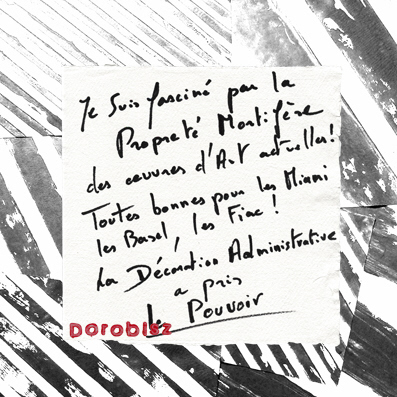 Je Suis fasciné par la
Propreté Mortifère
des œuvres d'Art actuelles!
Toutes bonnes pour les Miami
les Basel, les Fiac!
La Décoration Administrative
a pris
le Pouvoir
Doroblsz